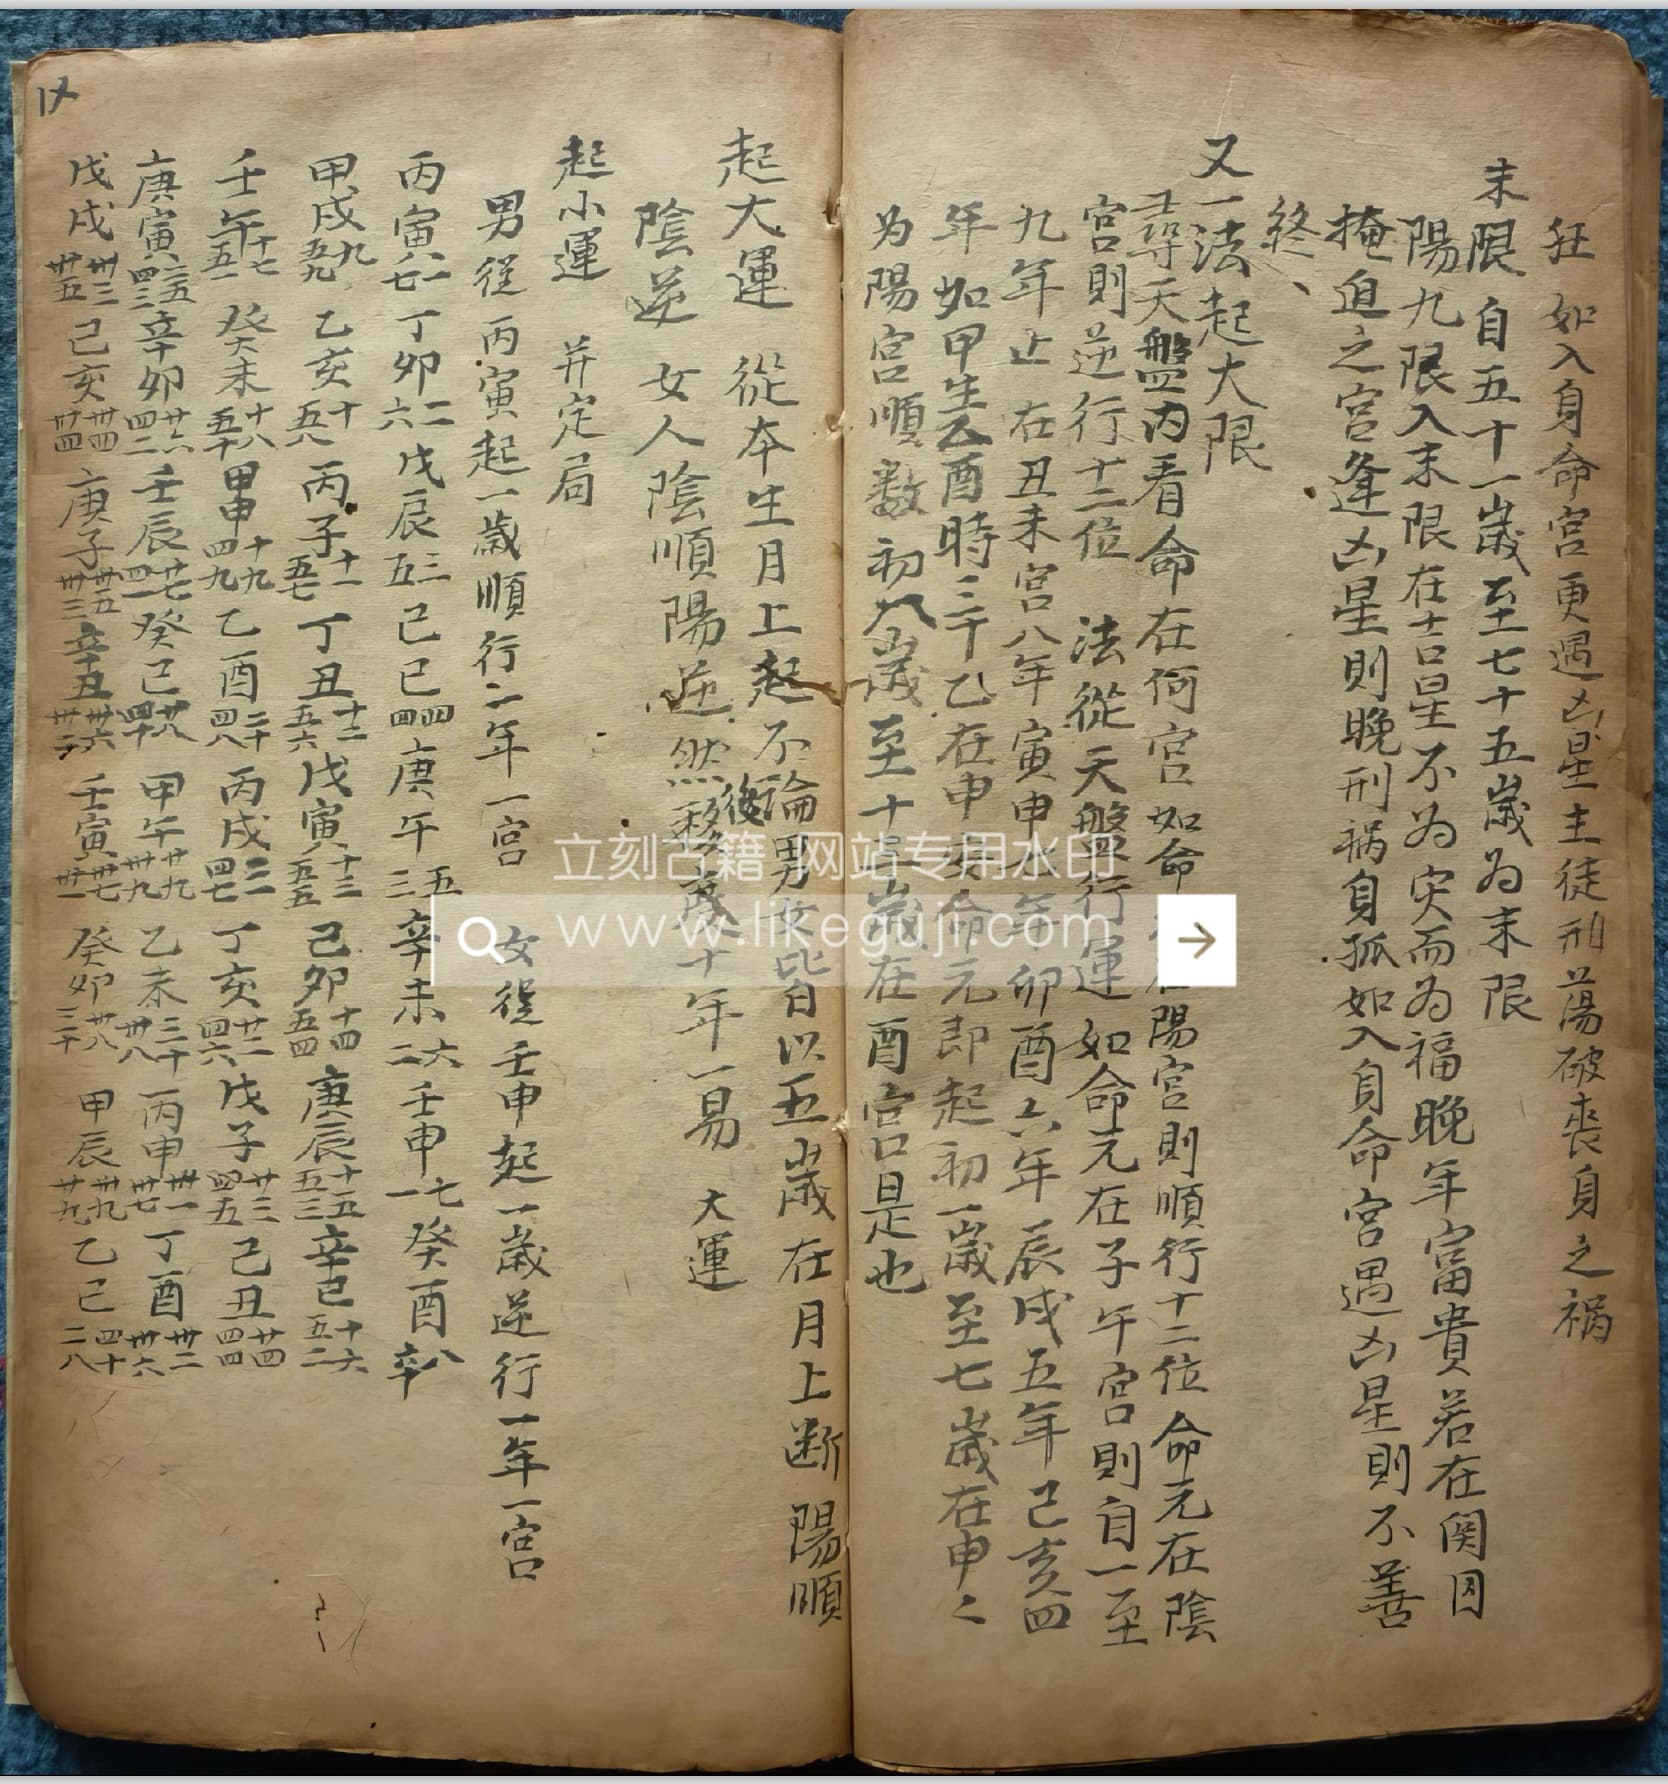 狂 如入身命宮更遇凶星主徒刑蕩破喪身之禍
末限 自五十一歲至七十五歲為末限
陽九限入末限在吉星不为灾而为福晚年富貴若在関囚
掩迫之宮逢凶星則晚刑禍身孤如入身命宮遇凶星則不善
終、
又一法起大限
尋天盤內看命在何宮如命在陽宮則順行十二位命元在陰
宮則逆行十二位 法從天盤行運如命元在子午宮則自一至
九年止 在丑未宮八年寅申七年卯酉六年辰戌五年己亥四
年如甲生乙酉時三千乙在申命元即起初一歲至七歲在申之
为陽宮順數初八歲至十歲在酉宮是也
起大運 從本生月上起不論男女皆自以五歲在月上断 陽順
陰逆 女人陰順陽逆然後移度十年一易 大運
起小運 并定局
男從丙寅起一歲順行二年一宮 女從壬申起一歲逆行一年一宮
丙寅一八 六七丁卯二六戊辰三五己巳四四庚午五三辛未六二壬申七一癸酉八辛
甲戌九五九乙亥十五八丙子十一五七丁丑十二五六戊寅十三五五己卯十四五四庚辰十五五三辛巳十六五二
壬午十七五一癸未十八五十甲申十九四九乙酉二十四八丙戌二一四七丁亥廿二四六戊子廿三四五己丑廿四四四
庚寅二五四三辛卯廿六四二壬辰廿七四一癸巳廿八四十甲午廿九卅九乙未三十卅八丙申卅一卅七丁酉卅二卅六
戊戌卅三卅五己亥卅四卅四庚子卅五卅三辛丑卅六卅二壬寅卅七卅一癸卯卅八三十甲辰卅九廿九乙巳四十二八
立刻古籍 网站专用水印
www.likeguji.com